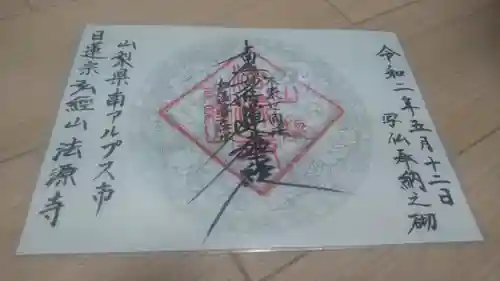 令和二年五月十二日
写仏奉納之砌
南無妙法蓮華経
山梨県南アルプス市
日蓮宗 玄經山 法源寺